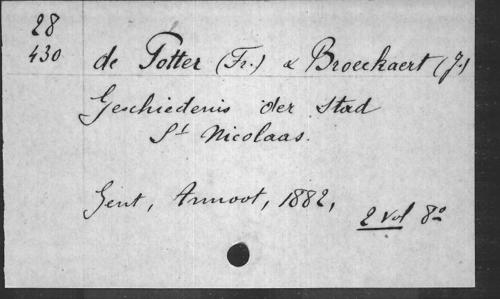 28
430
de Potter (Fr.) & Broeckaert (J.)
Geschiedenis der Stad
St Nicolaas.
Gent, Annoot, 1882,
2 vol 8º